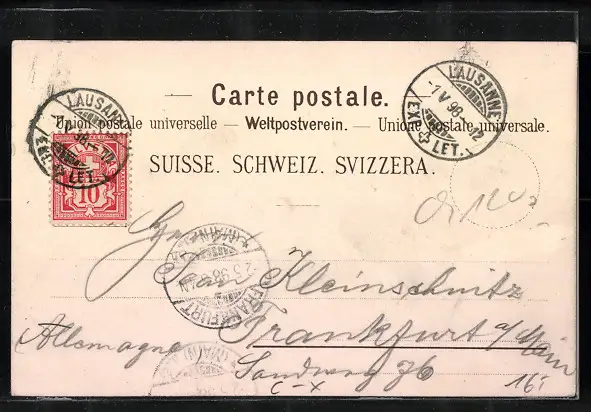 Carte postale.
Union postale universelle. — Weltpostverein. — Unione postale universale.
SUISSE. SCHWEIZ. SVIZZERA.
LAUSANNE
-1 V 98.-12
EXP. LET.
LAUSANNE
EXP. LET.
10
FRANKFURT
(MAIN)
2.5.98
Kleinschnitz
Frankfurt a/Main
Allemagne
Sandweg 76
C-X